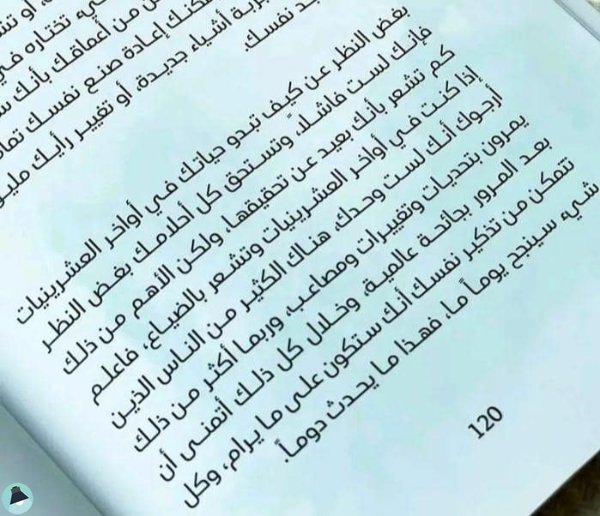 أو تش
في، تختاره في
من أعماقك بأنك س
يمكنك إعادة صنع نفسك تما
تجربة أشياء جديدة، أو تغيير رأيك مليو
نفسك.
بغض النظر عن كيف تبدو حياتك في أواخر العشرينيات
فإنك لست فاشلاً، وتستحق كل أحلامك بغض النظر
كم تشعر بأنك بعيد عن تحقيقها، ولكن الأهم من ذلك
إذا كنت في أواخر العشرينيات وتشعر بالضياع، فاعلم
أرجوك أنك لست وحدك، هناك الكثير من الناس الذين
يمرون بتحديات وتغييرات ومصاعب، وربما أكثر من ذلك
بعد المرور بجائحة عالمية، وخلال كل ذلك أتمنى أن
تتمكن من تذكير نفسك أنك ستكون على ما يرام، وكل
شيء سينجح يوماً ما، فهذا ما يحدث دوماً.
120